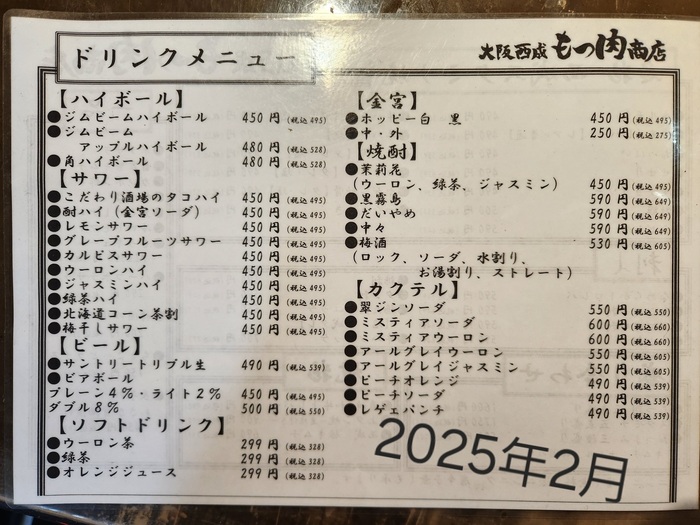 ドリンクメニュー
大阪西成 もつ肉商店
【ハイボール】
●ジムビームハイボール 450円(税込495)
●ジムビーム
アップルハイボール 480円(税込528)
●角ハイボール 480円(税込528)
【サワー】
●こだわり酒場のタコハイ 450円(税込495)
●酎ハイ(金宮ソーダ) 450円(税込495)
●レモンサワー 450円(税込495)
●グレープフルーツサワー 450円(税込495)
●カルピスサワー 450円(税込495)
●ウーロンハイ 450円(税込495)
●ジャスミンハイ 450円(税込495)
●緑茶ハイ 450円(税込495)
●北海道コーン茶割 450円(税込495)
●梅干しサワー 450円(税込495)
【ビール】
●サントリートリプル生 490円(税込539)
●ビアボール
プレーン4%・ライト2% 450円(税込495)
ダブル8% 500円(税込550)
【ソフトドリンク】
●ウーロン茶 299円(税込328)
●緑茶 299円(税込328)
●オレンジジュース 299円(税込328)
【金宮】
●ホッピー白 黒 450円(税込495)
●中・外 250円(税込275)
【焼酎】
●茉莉花
(ウーロン、緑茶、ジャスミン) 450円(税込495)
●黒霧島 590円(税込649)
●だいやめ 590円(税込649)
●中々 590円(税込649)
●梅酒 530円(税込605)
(ロック、ソーダ、水割り、
お湯割り、ストレート)
【カクテル】
●翠ジンソーダ 550円(税込550)
●ミスティアソーダ 600円(税込660)
●ミスティアウーロン 600円(税込660)
●アールグレイウーロン 550円(税込605)
●アールグレイジャスミン 550円(税込605)
●ピーチオレンジ 490円(税込539)
●ピーチソーダ 490円(税込539)
●レゲエパンチ 490円(税込539)
2025年2月